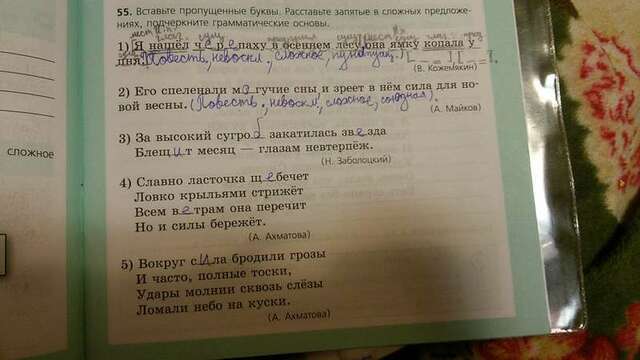 55. Вставьте пропущенные буквы. Расставьте запятые в сложных предложе-
ниях, подчеркните грамматические основы.
1) Я нашёл черепаху в осеннем лесу, она ямку копала у
пня. (Повеств, невоскл, сложное,
(В. Кожемякин)
2) Его спеленали могучие сны, и зреет в нём сила для но-
вой весны. (Повеств, невоскл, сложное, союзная).
(А. Майков)
3) За высокий сугроб закатилась звезда
Блещит месяц — глазам невтерпёж.
(Н. Заболоцкий)
сложное
4) Славно ласточка щебечет
Ловко крыльями стрижёт
Всем ветрам она перечит
Но и силы бережёт.
(А. Ахматова)
5) Вокруг села бродили грозы
И часто, полные тоски,
Удары молнии сквозь слёзы
Ломали небо на куски.
(А. Ахматова)